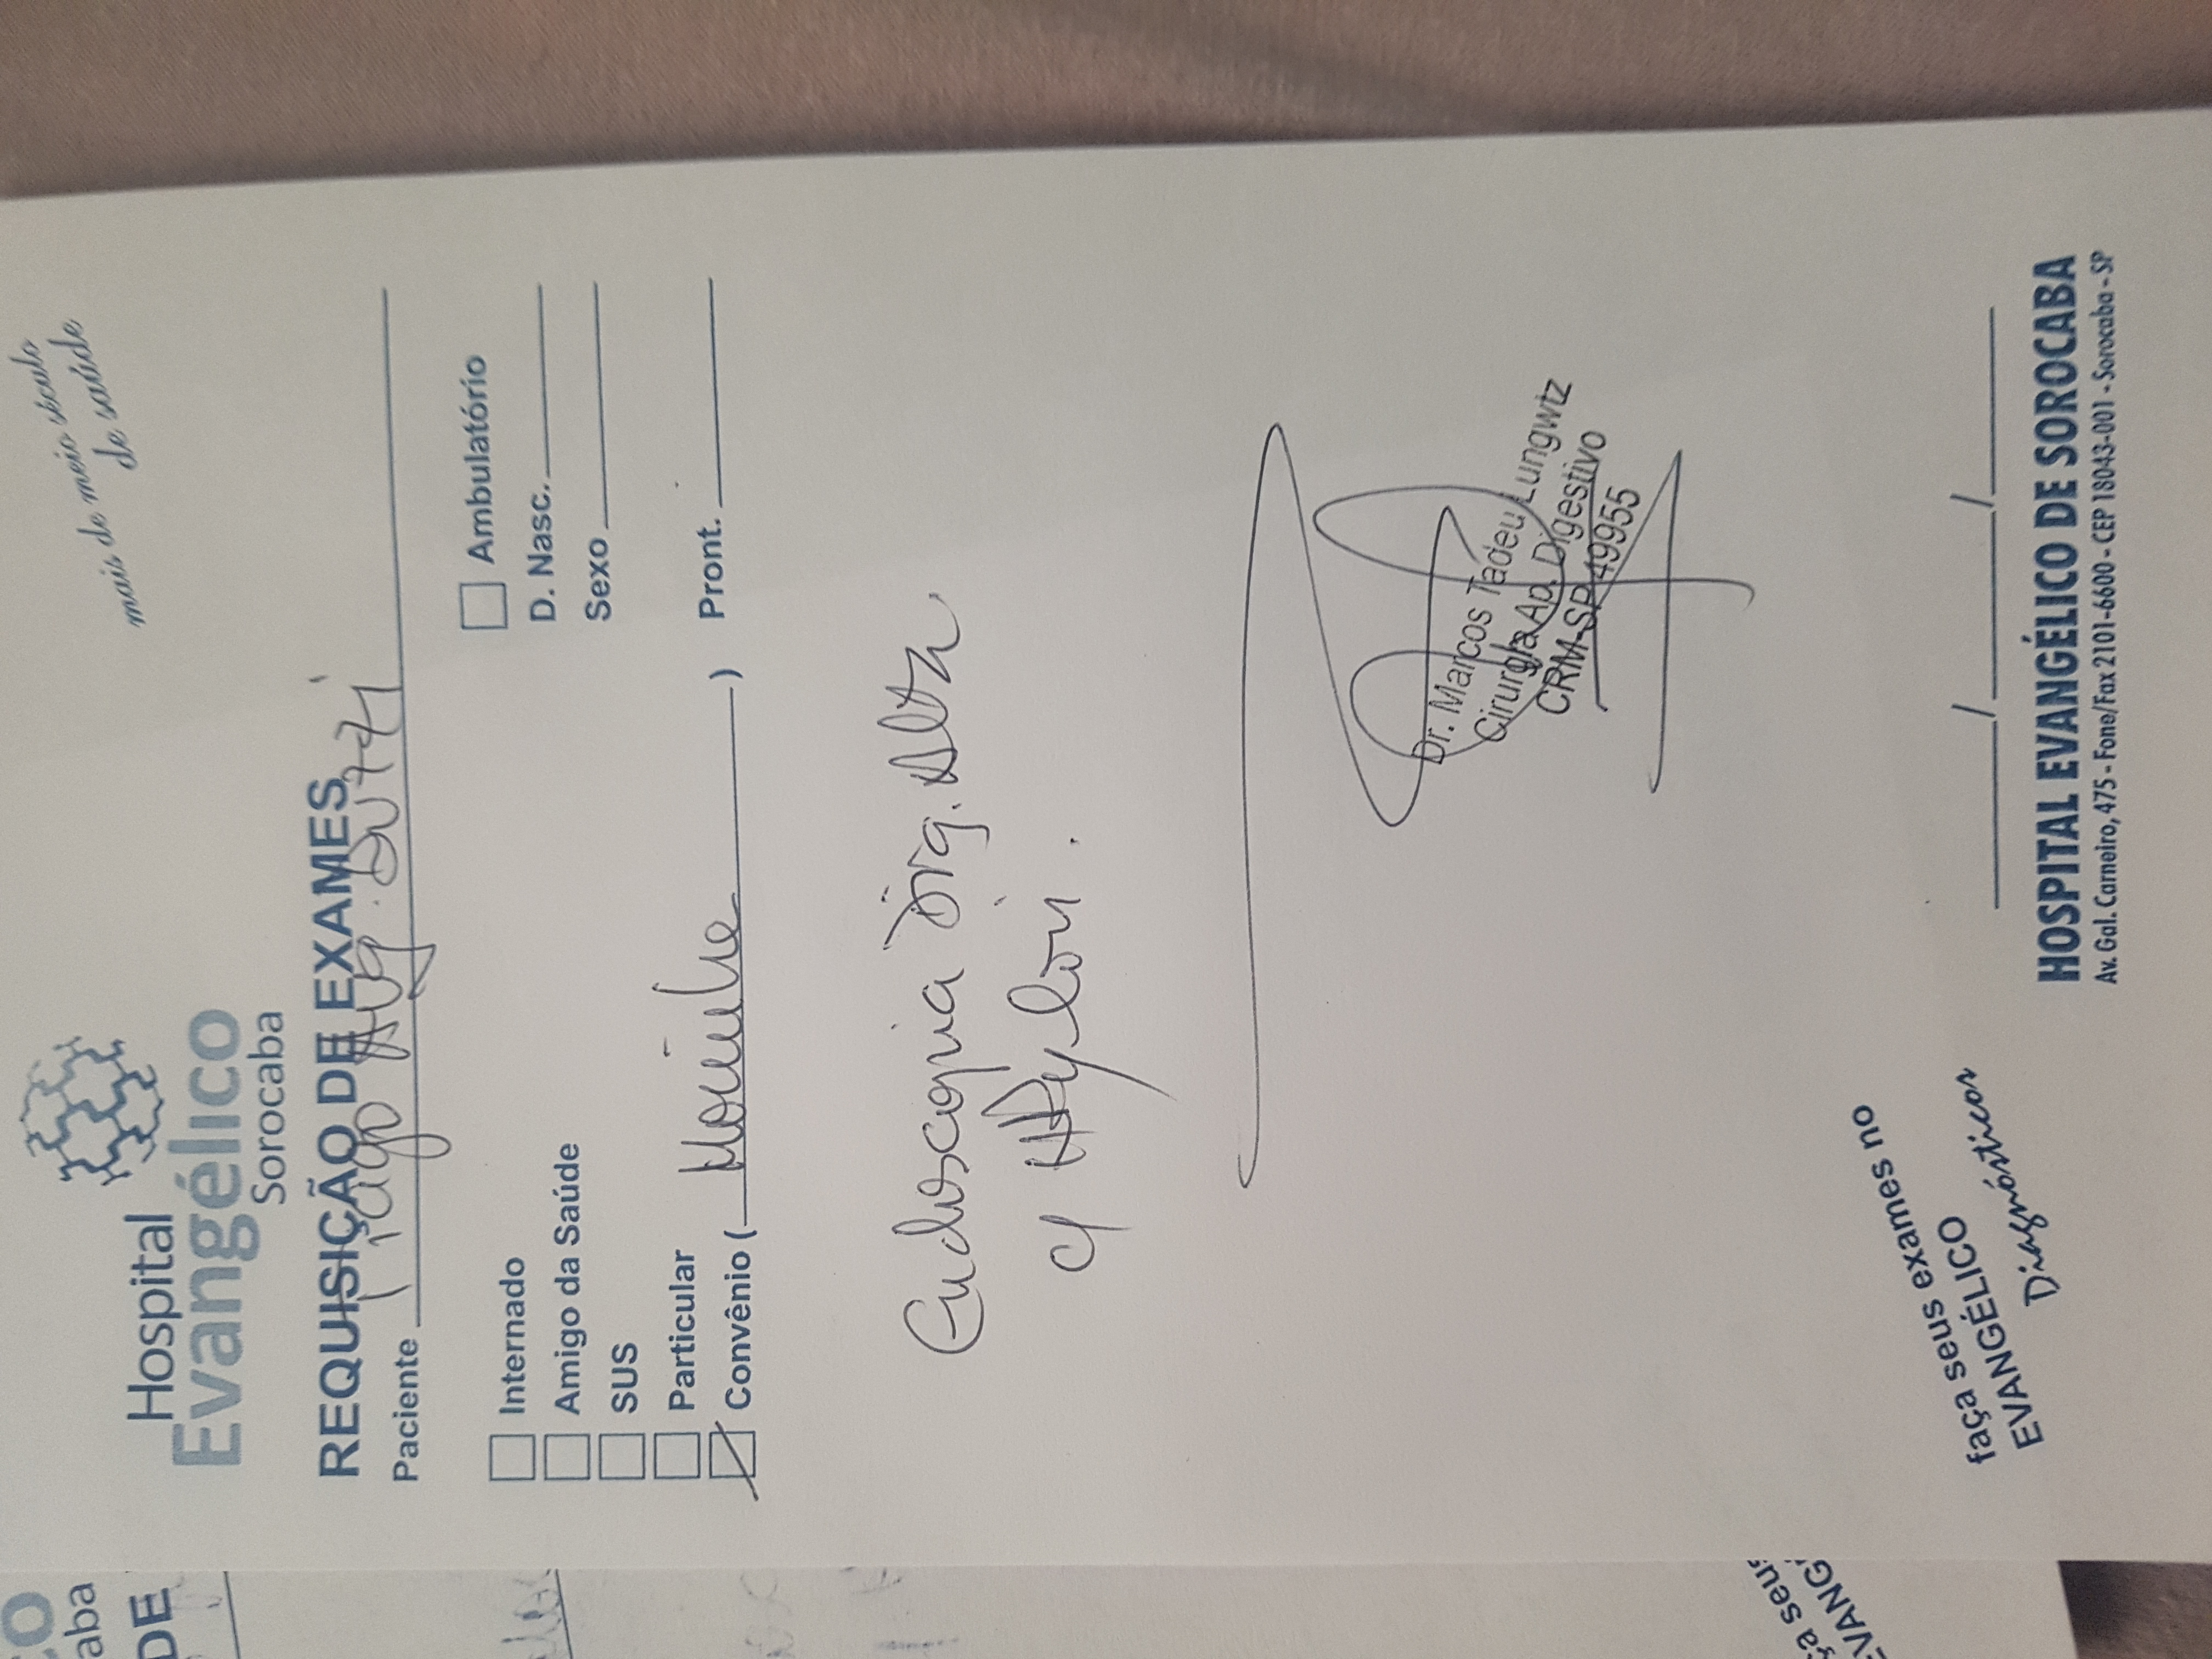 co
aba
DE
mais de meio século
de saúde
Hospital
Evangélico
Sorocaba
REQUISIÇÃO DE EXAMES
Paciente Tiago Aug.
Internado
Amigo da Saúde
SUS
Particular
Convênio ( )
Ambulatório
D. Nasc.
Sexo
Pront.
Endoscopia Dig. Alta
c/ HPylori.
Dr. Marcos Tadeu Lungwtz
Cirurgia Ap. Digestivo
CRM-SP 49955
ça seus
EVANG
faça seus exames no
EVANGÉLICO
Diagnósticos
/ /
HOSPITAL EVANGÉLICO DE SOROCABA
Av. Gal. Carneiro, 475 - Fone/Fax 2101-6600 - CEP 18043-001 - Sorocaba - SP